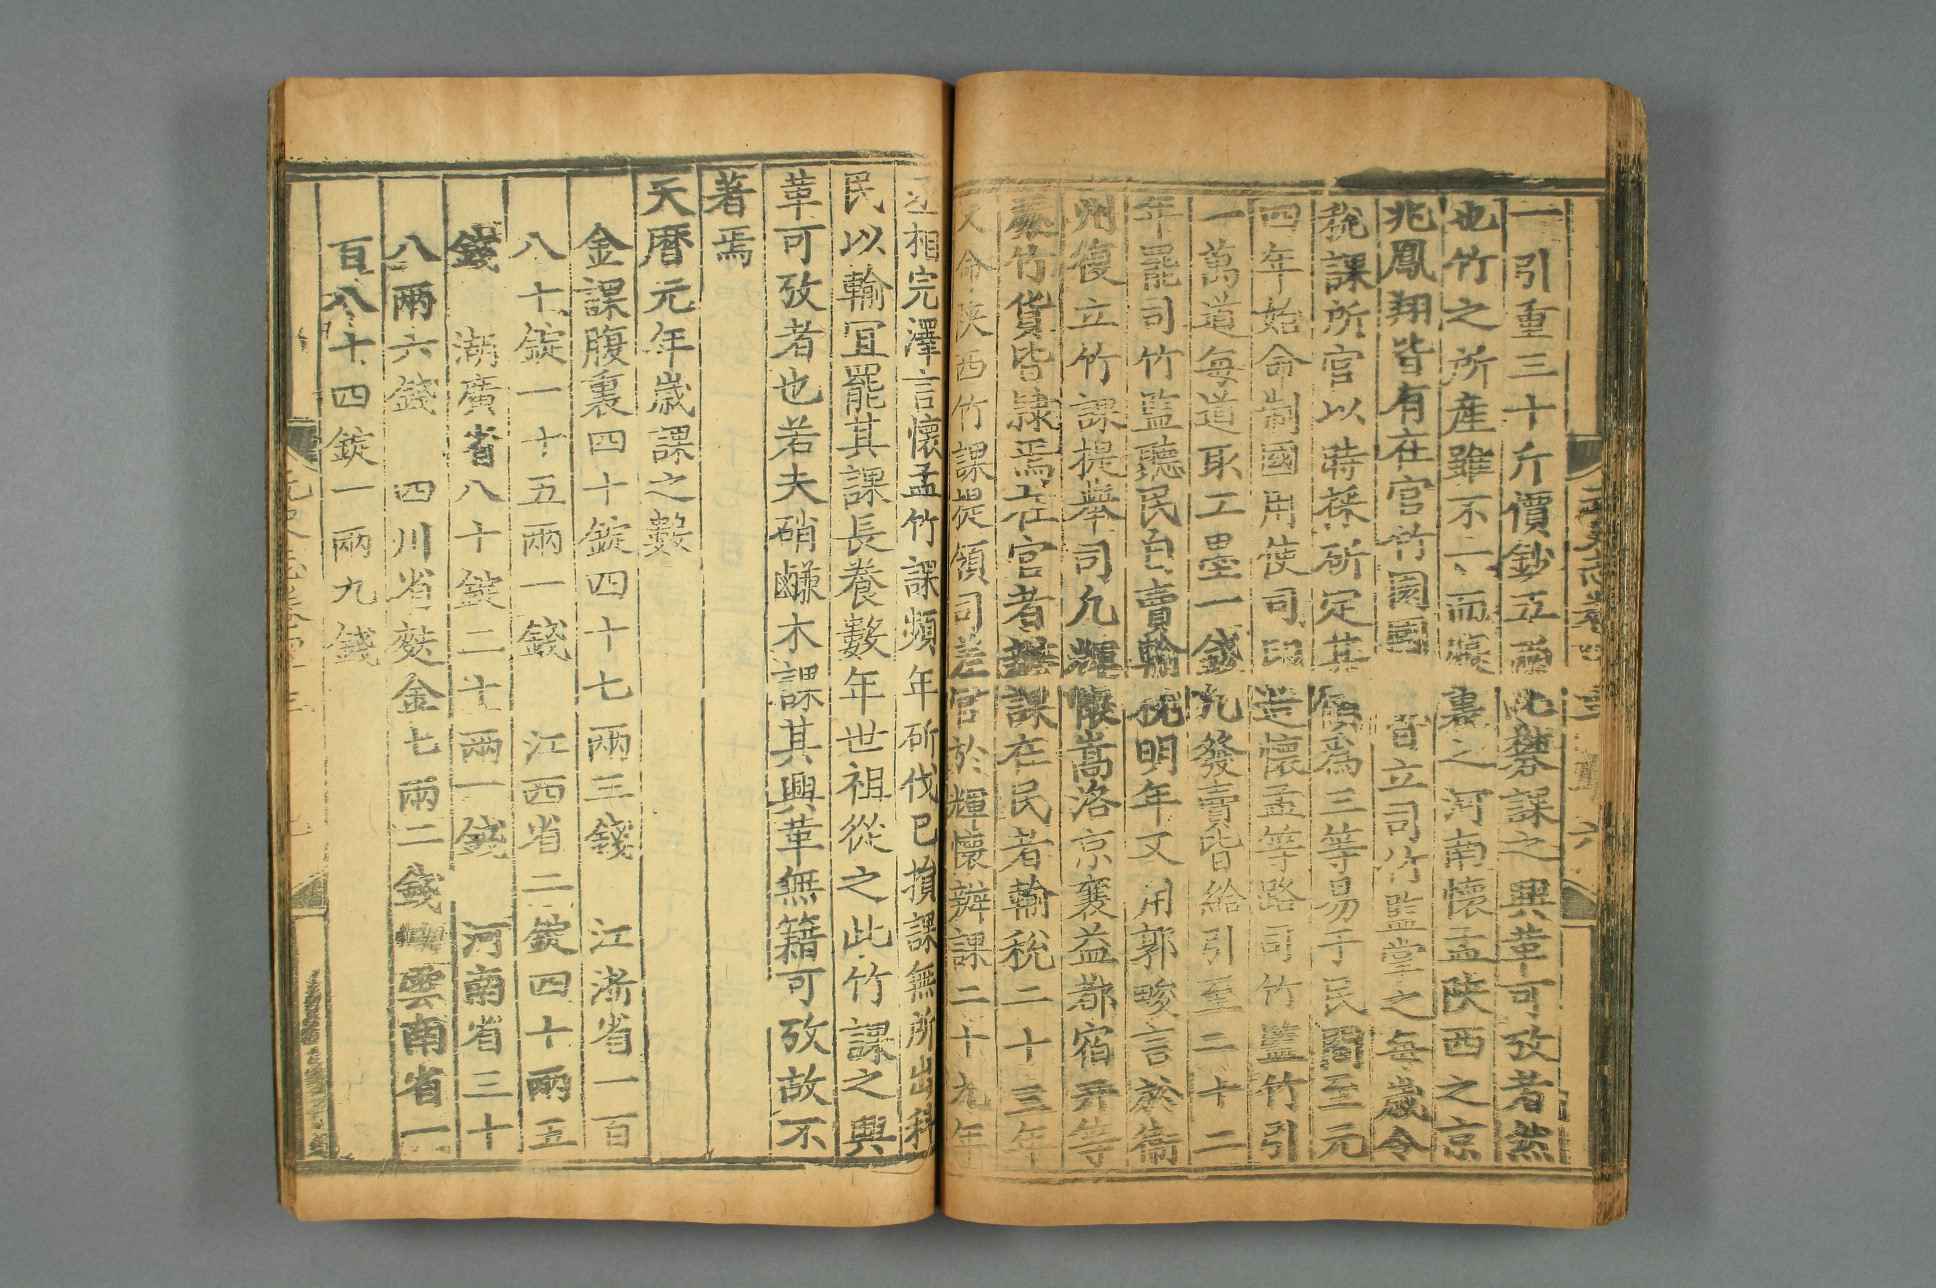 一引重三十斤價鈔五兩此礬課之興革可攷者然
也竹之所産雖不一而腹裏之河南懷孟陝西之京
兆鳳翔皆有在官竹園國 皆立司竹監掌之每歲令
稅課所官以時採斫定其 價爲三等易于民間至元
四年始命制國用使司印造懷孟等路司竹監竹引
一萬道每道取工墨一錢九發賣皆給引至二十二
年罷司竹監聽民自賣輸稅明年又用郭畯言於衞
州復立竹課提舉司凡輝懷嵩洛京襄益都宿 等
處竹貨皆隷焉在官者辦課在民者輸稅二十三年
又命陝西竹課提領司差官於輝懷辦課二十九年
相完澤言懷孟竹課頻年斫伐已損課無所出科
民以輸宜罷其課長養數年世祖從之此竹課之興
革可攷者也若夫硝鹻木課其興革無籍可攷故不
著焉
天曆元年歲課之數
金課腹裏四十錠四十七兩三錢 江浙省一百
八十錠一十五兩一錢 江西省二錠四十兩五
錢 湖廣省八十錠二十兩一錢 河南省三十
八兩六錢 四川省麩金七兩二錢 雲南省一
百八十四錠一兩九錢